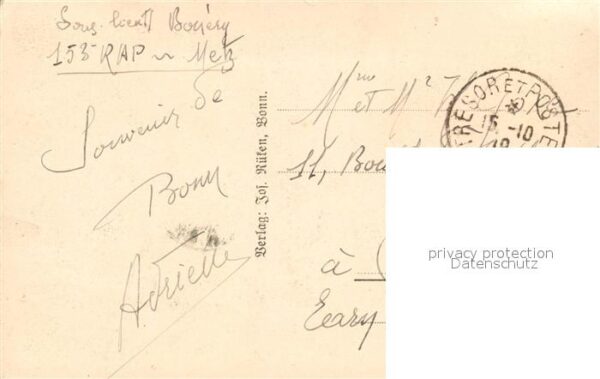 Sous-lieutt
153 RAP Metz
Souvenir de
Bonn
Adrielle
Verlag: Jos. Rüten, Bonn.
Mme et Mr
11, Bou
à
TRESOR ET POSTE
15-10
privacy protection
Datenschutz